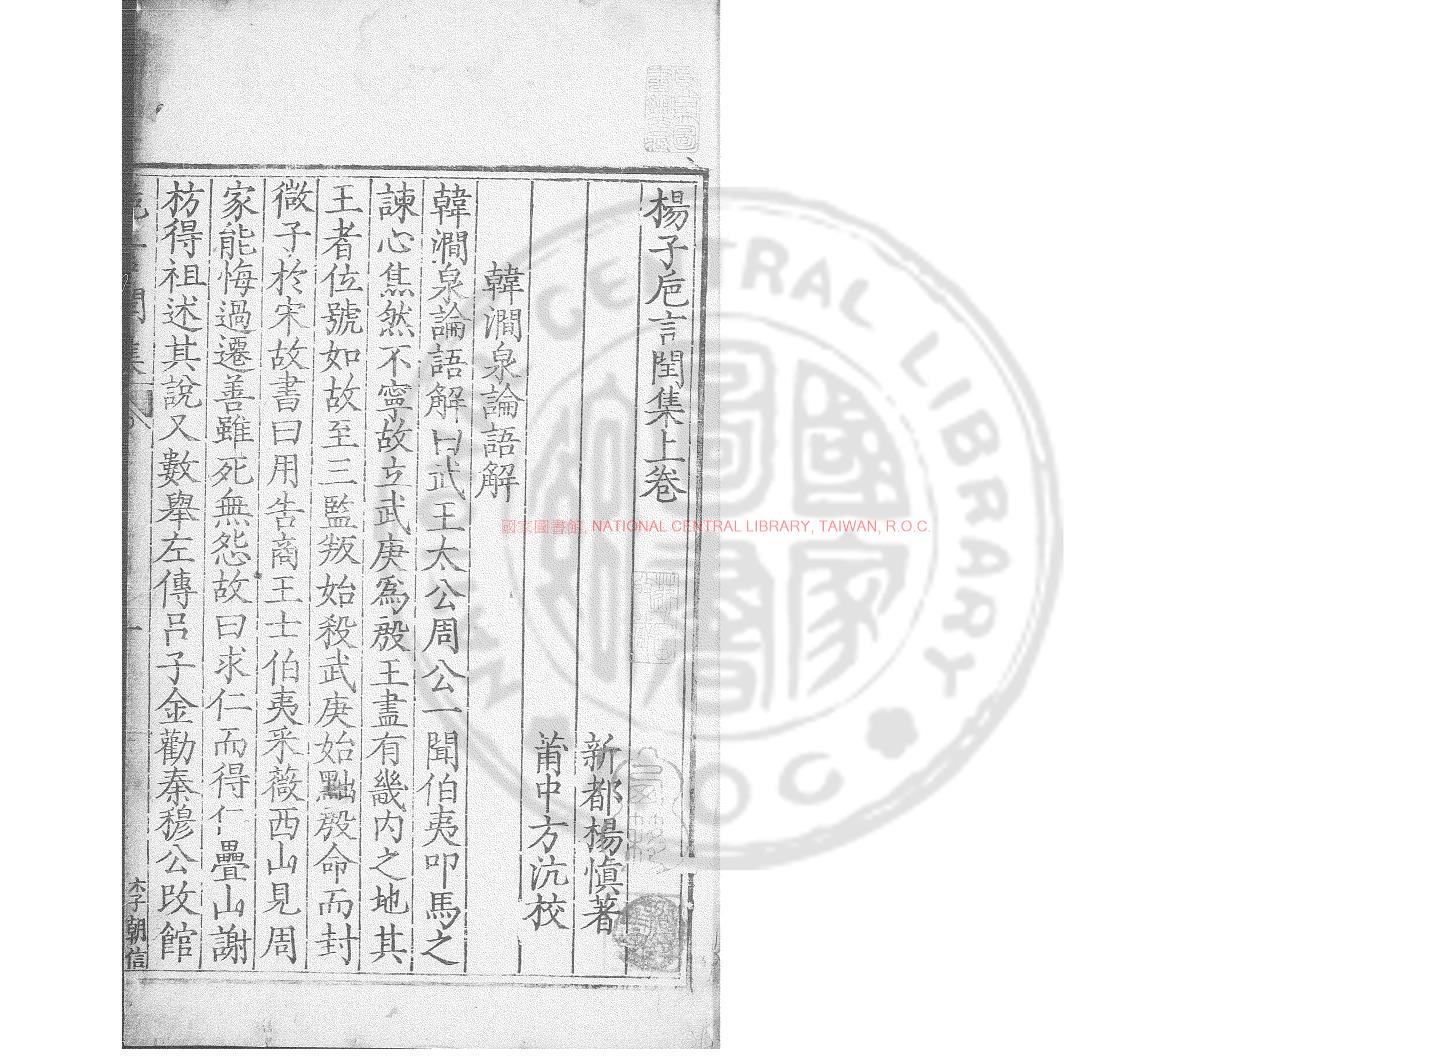 楊子巵言閏集上卷
新都楊慎著
莆中方沆校
韓澗泉論語解
韓澗泉論語解曰武王太公周公一聞伯夷叩馬之
諫心焦然不寧故立武庚為殷王盡有畿内之地其
王者位號如故至三監叛始殺武庚始黜殷命而封
微子於宋故書曰用告商王士伯夷采薇西山見周
家能悔過遷善雖死無怨故曰求仁而得仁疊山謝
枋得祖述其說又數舉左傳呂子金勸秦穆公改館
李朝信
國家圖書館, NATIONAL CENTRAL LIBRARY, TAIWAN, R.O.C.
NATIONAL CENTRAL LIBRARY
R.O.C.
國家圖書